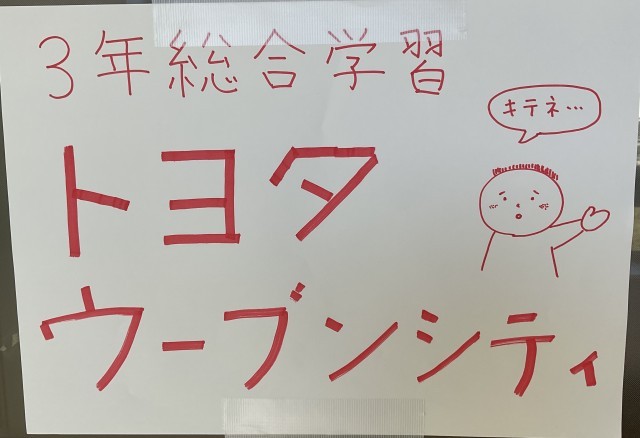 3年総合学習
キテネ…
トヨタ
ウーブンシティ